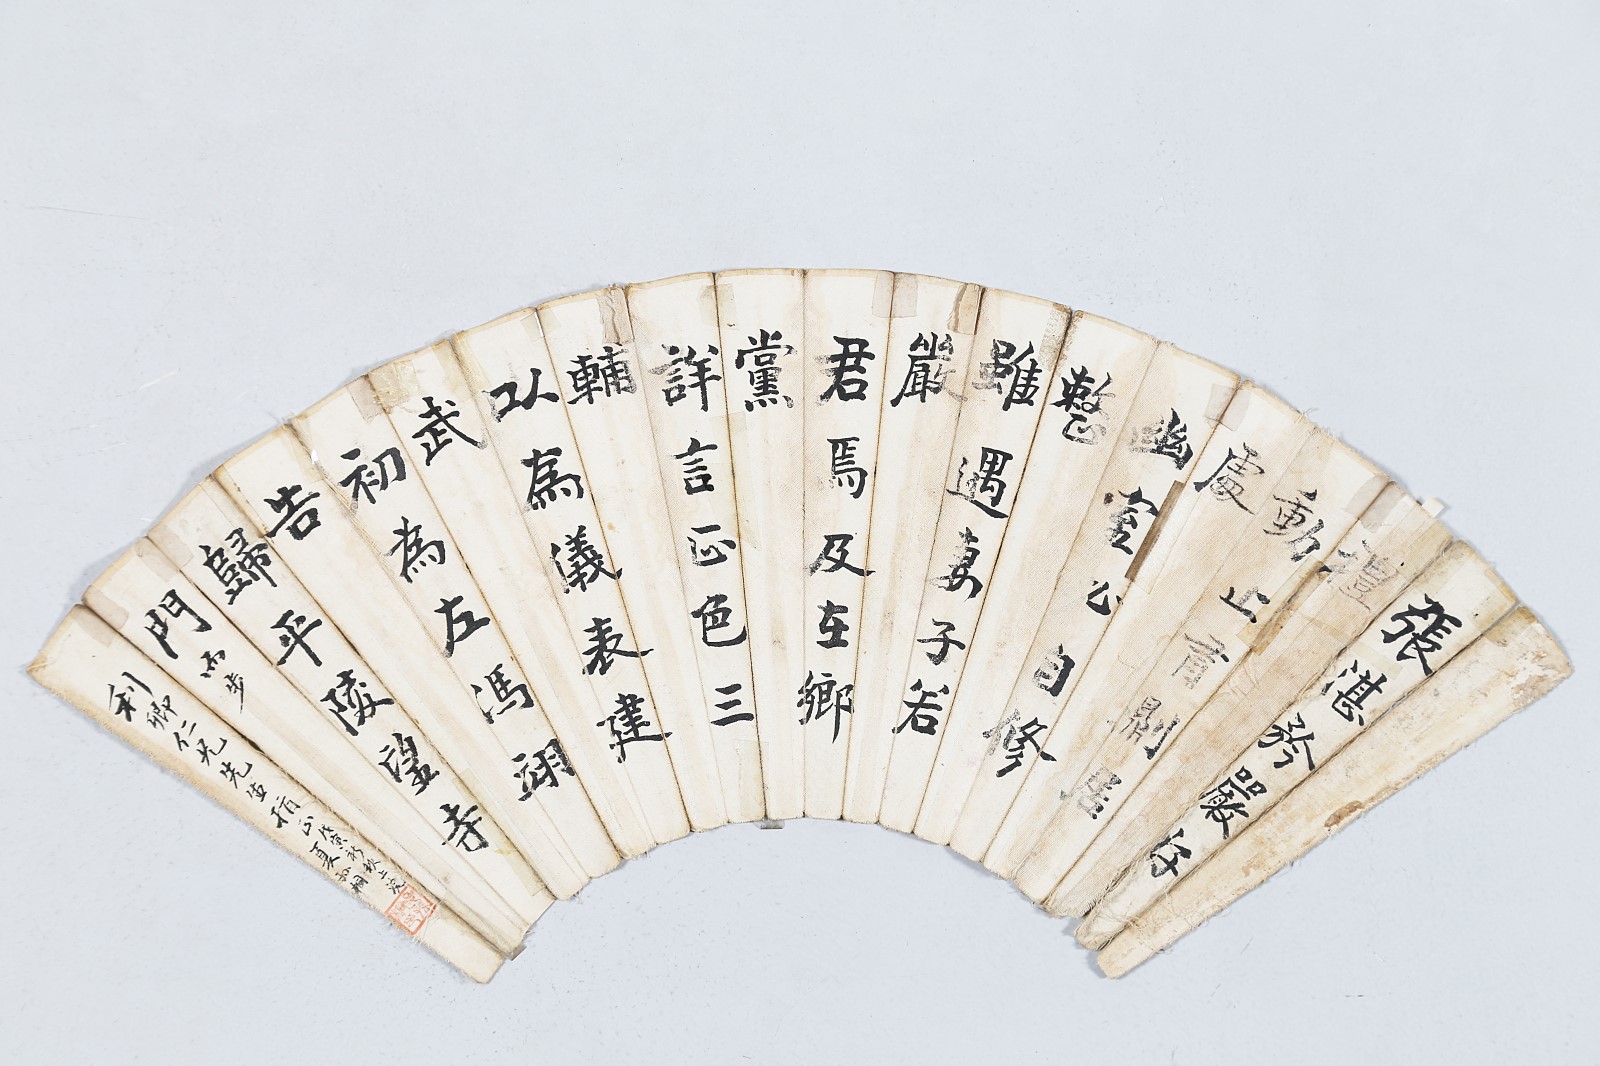 張湛矜嚴好
禮
動止有則居
處
幽室必自修
整
雖遇妻子若
嚴
君焉及在鄉
黨
詳言正色三
輔
以為儀表建
武
初為左馮翊
告
歸平陵望寺
門而步
利卿仁兄先生
指正
戊寅初秋上浣
夏孫桐